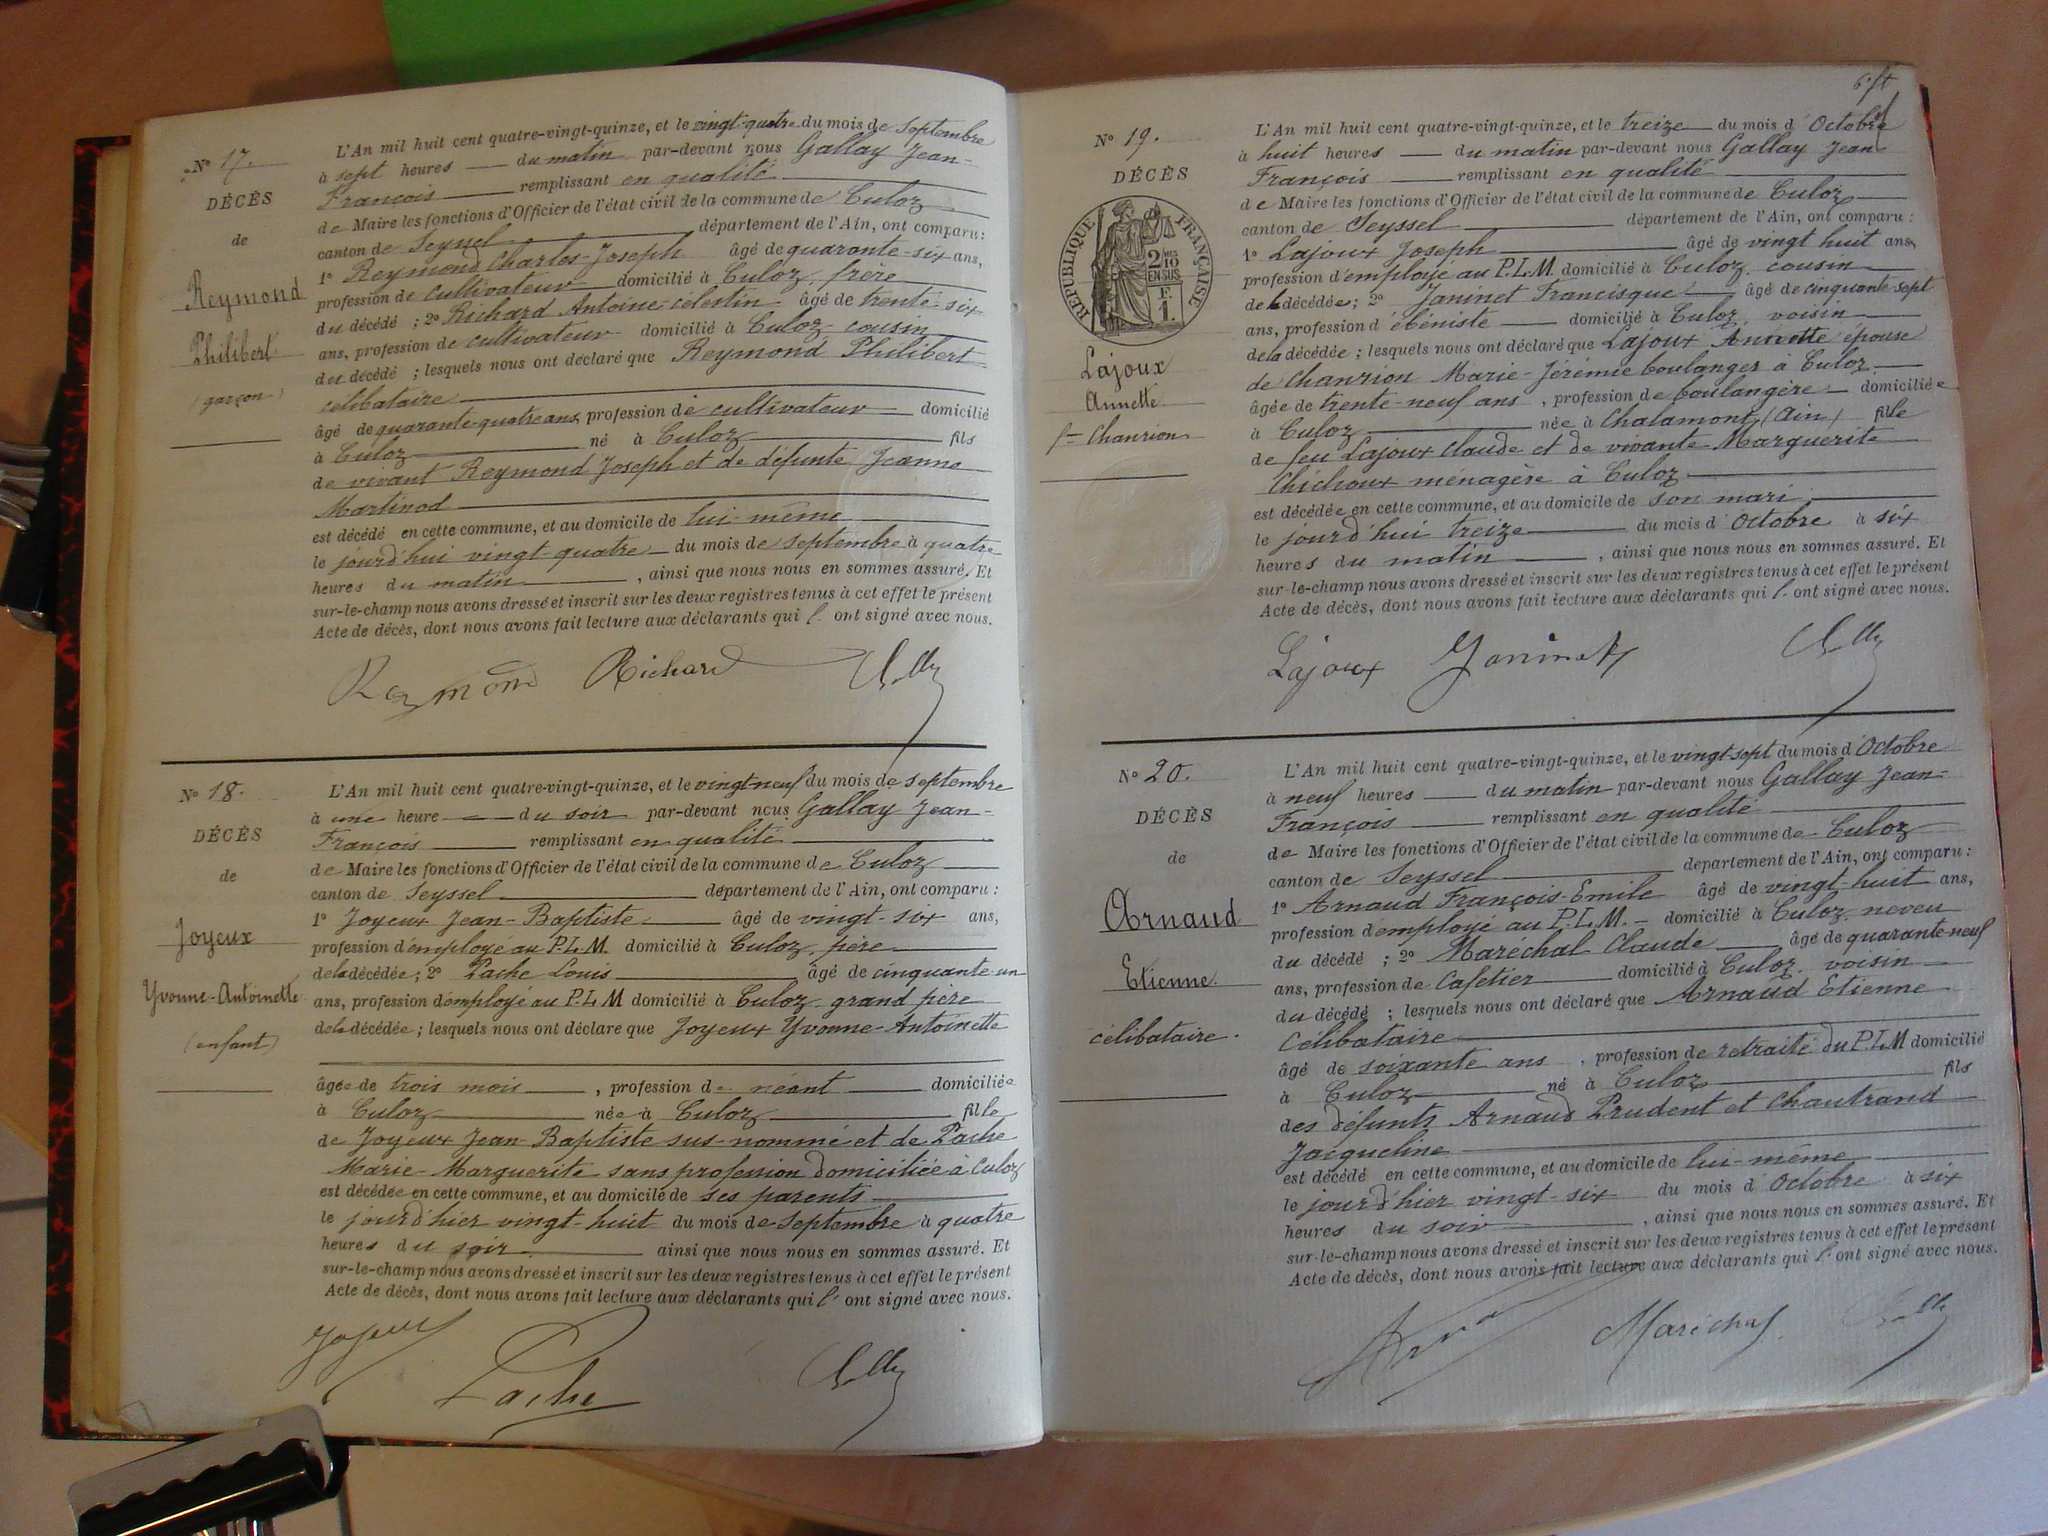 N° 17.
DÉCÈS
de
Reymond
Philibert
(garçon)
L'An mil huit cent quatre-vingt-quinze, et le vingt-quatre du mois de septembre
à sept heures du matin par-devant nous Gallay Jean-
François remplissant en qualité
de Maire les fonctions d'Officier de l'état civil de la commune de Culoz
canton de Seyssel département de l'Ain, ont comparu :
1° Reymond Charles-Joseph âgé de quarante-six ans,
profession de cultivateur domicilié à Culoz, frère
du décédé ; 2° Richard Antoine-célestin âgé de trente-six
ans, profession de cultivateur domicilié à Culoz cousin
du décédé ; lesquels nous ont déclaré que Reymond Philibert
célibataire
âgé de quarante-quatre ans, profession de cultivateur domicilié
à Culoz né à Culoz fils
de vivant Reymond Joseph et de défunte Jeanne
Martinod
est décédé en cette commune, et au domicile de lui-même
le jourd'hui vingt quatre du mois de septembre à quatre
heures du matin, ainsi que nous nous en sommes assuré. Et
sur-le-champ nous avons dressé et inscrit sur les deux registres tenus à cet effet le présent
Acte de décès, dont nous avons fait lecture aux déclarants qui l' ont signé avec nous.
Reymond Richard
N° 18.
DÉCÈS
de
Joyeux
Yvonne-Antoinette
(enfant)
L'An mil huit cent quatre-vingt-quinze, et le vingt neuf du mois de septembre
à une heure du soir par-devant nous Gallay Jean-
François remplissant en qualité
de Maire les fonctions d'Officier de l'état civil de la commune de Culoz
canton de Seyssel département de l'Ain, ont comparu :
1° Joyeux Jean-Baptiste âgé de vingt-six ans,
profession d'employé au P.L.M. domicilié à Culoz, père
de la décédée ; 2° Pache Louis âgé de cinquante-un
ans, profession d'employé au P.L.M domicilié à Culoz grand père
de la décédée ; lesquels nous ont déclaré que Joyeux Yvonne-Antoinette
âgée de trois mois, profession de néant domiciliée
à Culoz née à Culoz fille
de Joyeux Jean-Baptiste sus-nommé et de Pache
Marie-Marguerite sans profession domiciliée à Culoz
est décédée en cette commune, et au domicile de ses parents
le jourd'hier vingt-huit du mois de septembre à quatre
heures du soir ainsi que nous nous en sommes assuré. Et
sur-le-champ nous avons dressé et inscrit sur les deux registres tenus à cet effet le présent
Acte de décès, dont nous avons fait lecture aux déclarants qui l' ont signé avec nous.
Joyeux
Pache
N° 19.
DÉCÈS
RÉPUBLIQUE FRANÇAISE
2/10
EN SUS
F.
1.
Lajoux
Annette
f^e Chanrion
L'An mil huit cent quatre-vingt-quinze, et le treize du mois d'Octobre
à huit heures du matin par-devant nous Gallay Jean-
François remplissant en qualité
de Maire les fonctions d'Officier de l'état civil de la commune de Culoz
canton de Seyssel département de l'Ain, ont comparu :
1° Lajoux Joseph âgé de vingt huit ans,
profession d'employé au P.L.M. domicilié à Culoz cousin
de la décédée ; 2° Janinet Francisque âgé de cinquante sept
ans, profession d'ébéniste domicilié à Culoz voisin
de la décédée ; lesquels nous ont déclaré que Lajoux Annette épouse
de Chanrion Marie-Jérémie boulanger à Culoz
âgée de trente-neuf ans, profession de boulangère domiciliée
à Culoz née à Chalamont (Ain) fille
de feu Lajoux Claude et de vivante Marguerite
Chichoux ménagère à Culoz
est décédée en cette commune, et au domicile de son mari
le jourd'hui treize du mois d'Octobre à six
heures du matin, ainsi que nous nous en sommes assuré. Et
sur-le-champ nous avons dressé et inscrit sur les deux registres tenus à cet effet le présent
Acte de décès, dont nous avons fait lecture aux déclarants qui l' ont signé avec nous.
Lajoux Janinet
N° 20.
DÉCÈS
de
Arnaud
Etienne
célibataire
L'An mil huit cent quatre-vingt-quinze, et le vingt-sept du mois d'Octobre
à neuf heures du matin par-devant nous Gallay Jean-
François remplissant en qualité
de Maire les fonctions d'Officier de l'état civil de la commune de Culoz
canton de Seyssel département de l'Ain, ont comparu :
1° Arnaud François-Emile âgé de vingt-huit ans,
profession d'employé au P.L.M. domicilié à Culoz neveu
du décédé ; 2° Maréchal Claude âgé de quarante-neuf
ans, profession de Cafetier domicilié à Culoz voisin
du décédé ; lesquels nous ont déclaré que Arnaud Etienne
Célibataire
âgé de soixante ans, profession de retraité du P.L.M domicilié
à Culoz né à Culoz fils
des défunts Arnaud Prudent et Chautrand
Jacqueline
est décédé en cette commune, et au domicile de lui-même
le jourd'hier vingt-six du mois d'Octobre à six
heures du soir, ainsi que nous nous en sommes assuré. Et
sur-le-champ nous avons dressé et inscrit sur les deux registres tenus à cet effet le présent
Acte de décès, dont nous avons fait lecture aux déclarants qui l' ont signé avec nous.
Maréchal